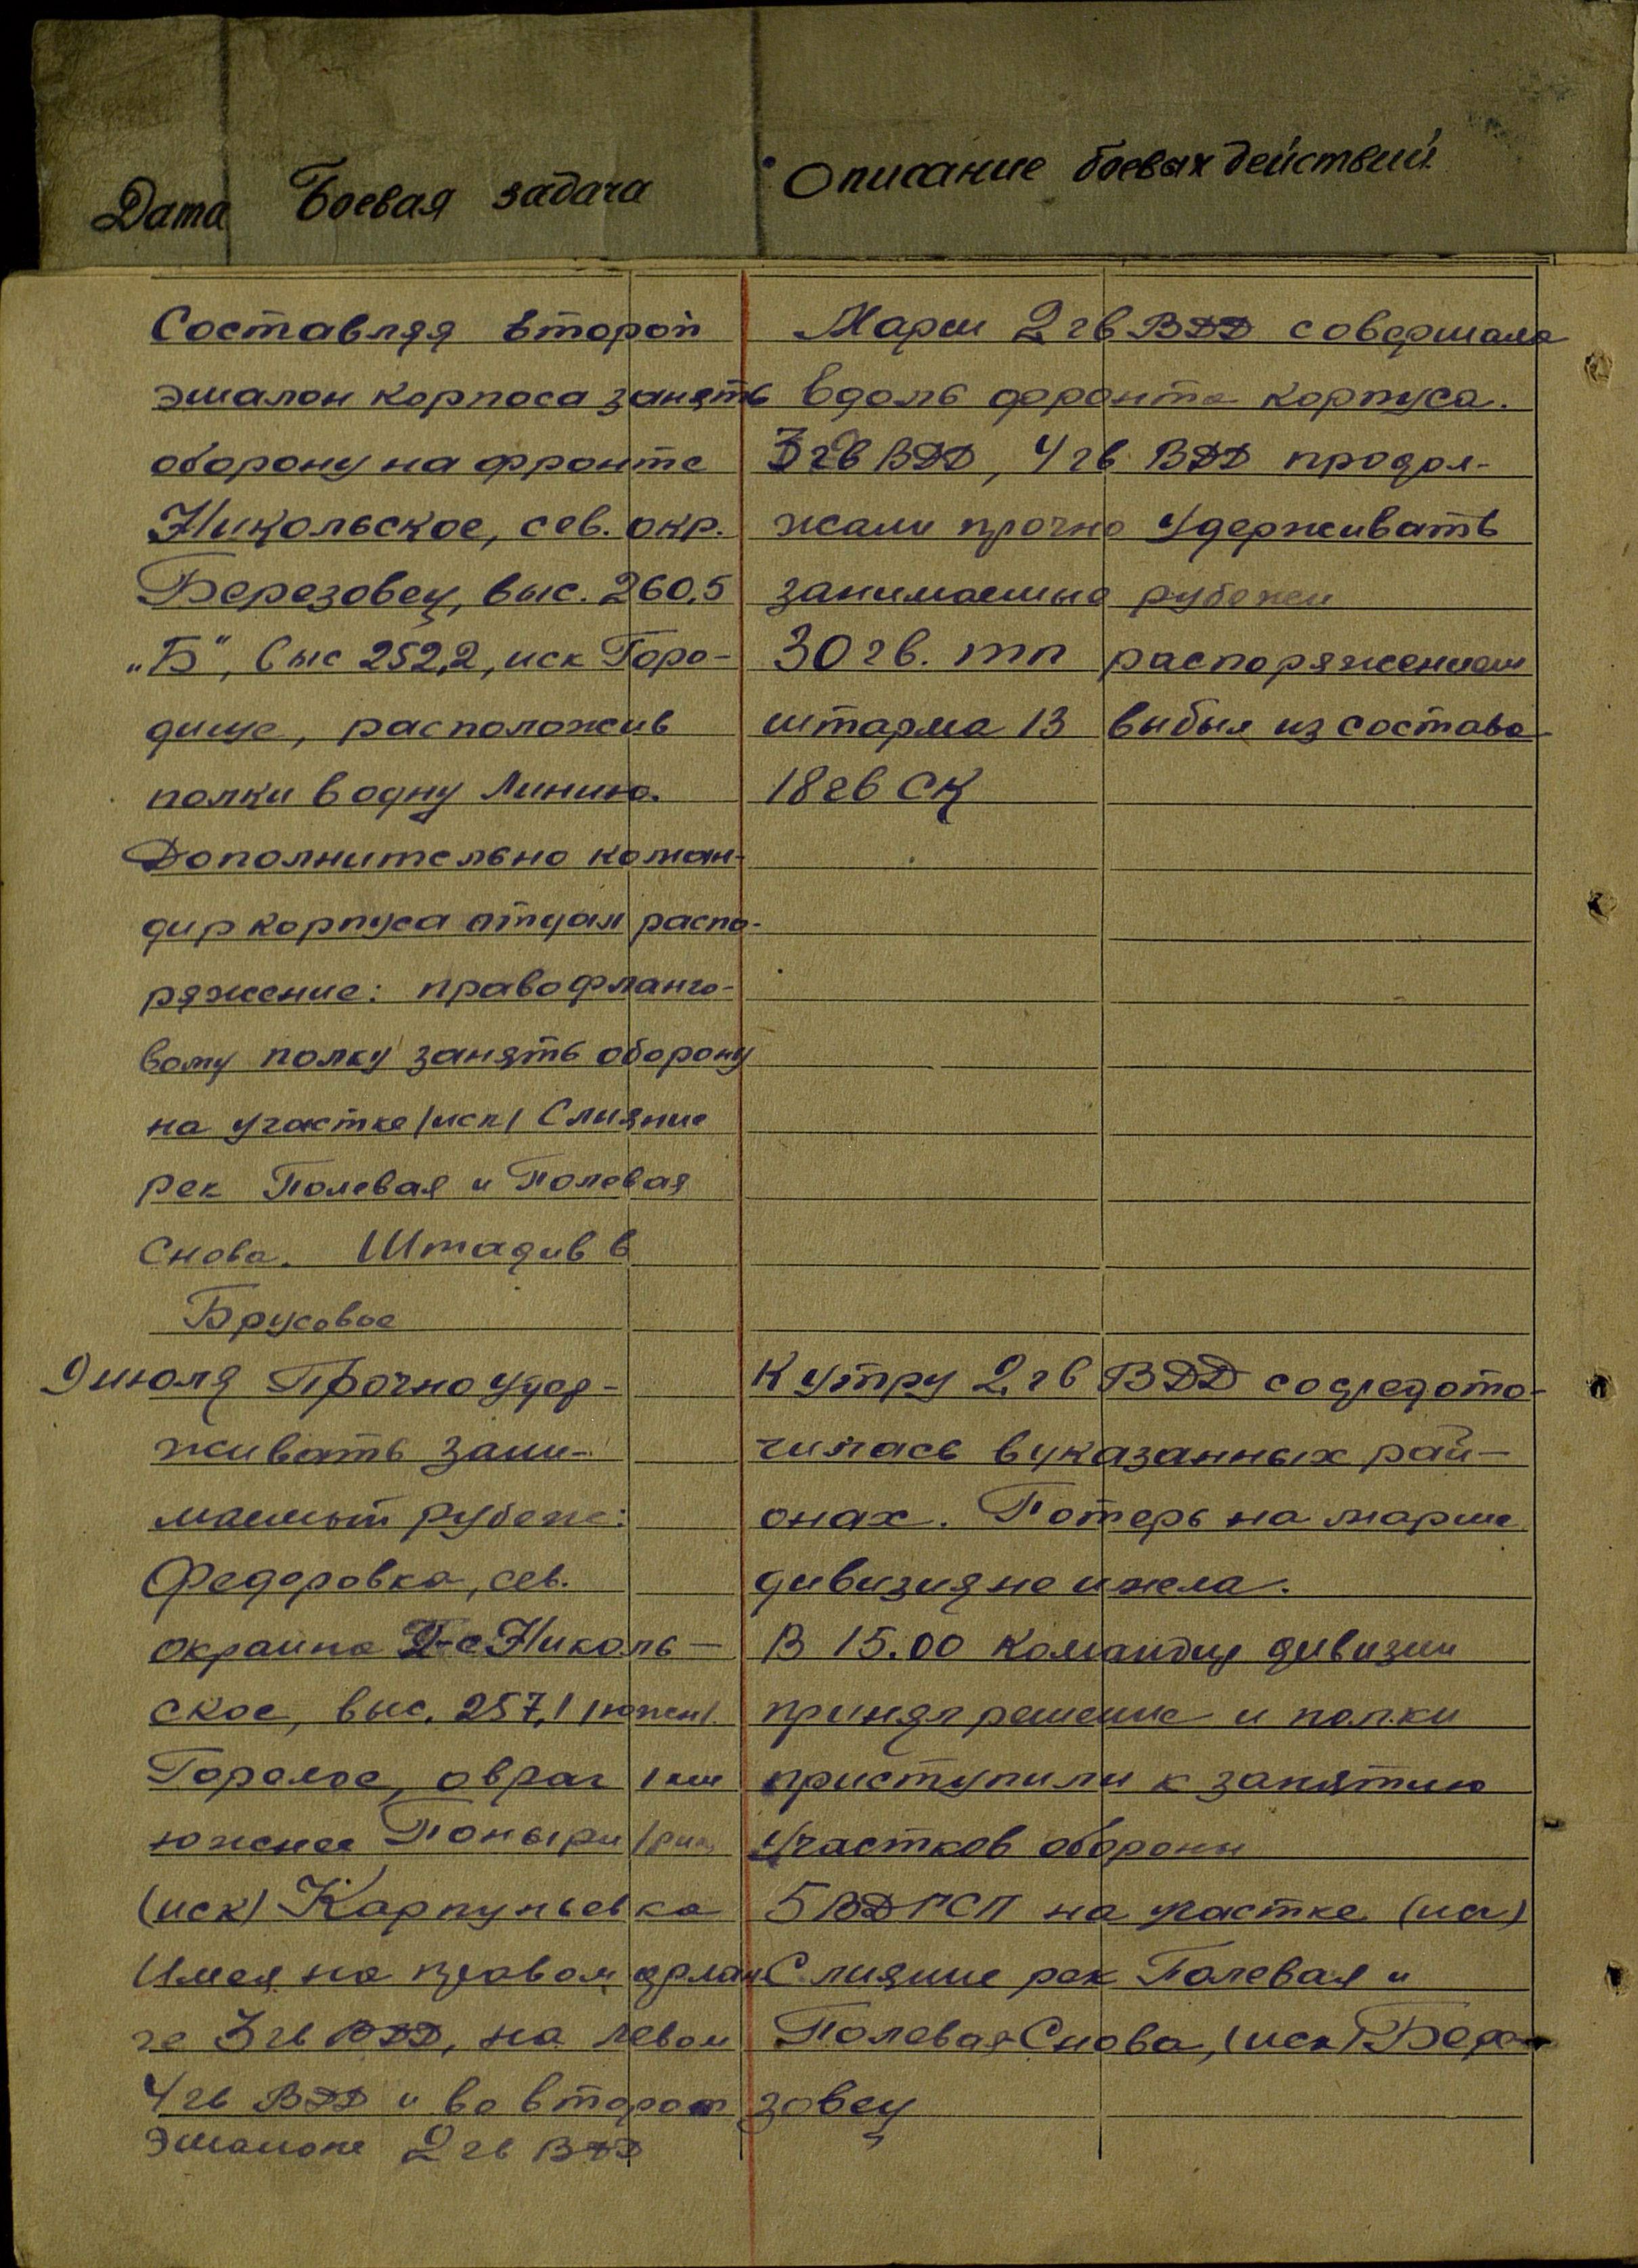 Дата
Боевая задача
Описание боевых действий
Составляя второй
эшалон корпоса занять
оборону на фронте
Никольское, сев. окр.
Березовец, выс. 260,5
„Б", выс 252,2, иск Горо-
дище, расположив
полки в одну линию.
Дополнительно коман-
дир корпуса отдал распо-
ряжение: правофланго-
вому полку занять оборону
на участке /иск/ Слияние
рек Полевая и Полевая
Снова. Штадив в
Брусовое
Марш 2 гв ВДД совершала
вдоль фронта корпуса.
3 гв ВДД, 4 гв ВДД продол-
жали прочно удерживать
занимаемые рубежи
30 гв. тп распоряжением
штарма 13 выбыл из состава
18 гв СК
9 июля Прочно удер-
живать зани-
маемый рубеж:
Федоровка, сев.
окраина 2-е Николь-
ское, выс. 257,1 /южн/.
Горелое, овраг 1 км
южнее Поныри
(иск) Карпуньевка
Имея на правом флан-
ге 3 гв ВДД, на левом
4 гв ВДД и во втором
эшалоне 2 гв ВДД
К утру 2 гв ВДД сосредото-
чилась в указанных рай-
онах. Потерь на марше
дивизия не имела.
В 15.00 командир дивизии
принял решение и полки
приступили к занятию
участков обороны
5 ВДГСП на участке (иск)
Слияние рек Полевая и
Полевая Снова, (иск) Бере-
зовец